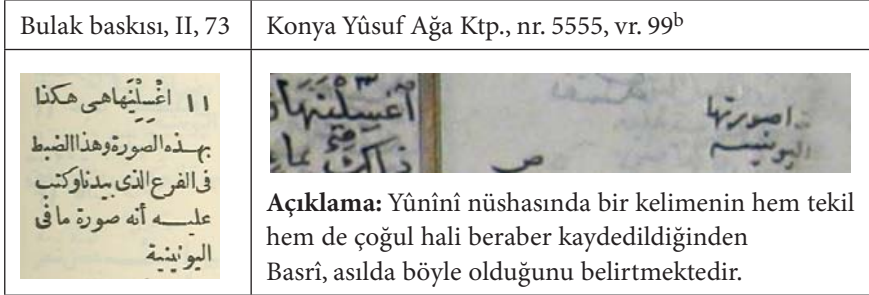 Bulak baskısı, II, 73
Konya Yûsuf Ağa Ktp., nr. 5555, vr. 99b
١١ اغْسِلْنَهاهى هكذا
بهذه الصورة وهذا الضبط
فى الفرع الذى بيدنا وكتب
عليه أنه صورة ما فى
اليونينية
صورتها
Açıklama: Yûnînî nüshasında bir kelimenin hem tekil
hem de çoğul hali beraber kaydedildiğinden
Basrî, asılda böyle olduğunu belirtmektedir.